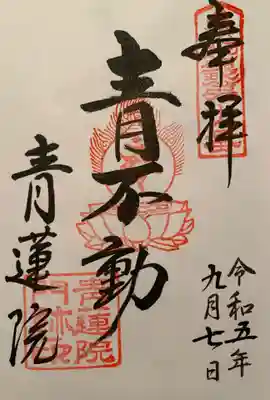 奉拝
令和五年
九月七日
青不動
青蓮院
青蓮院